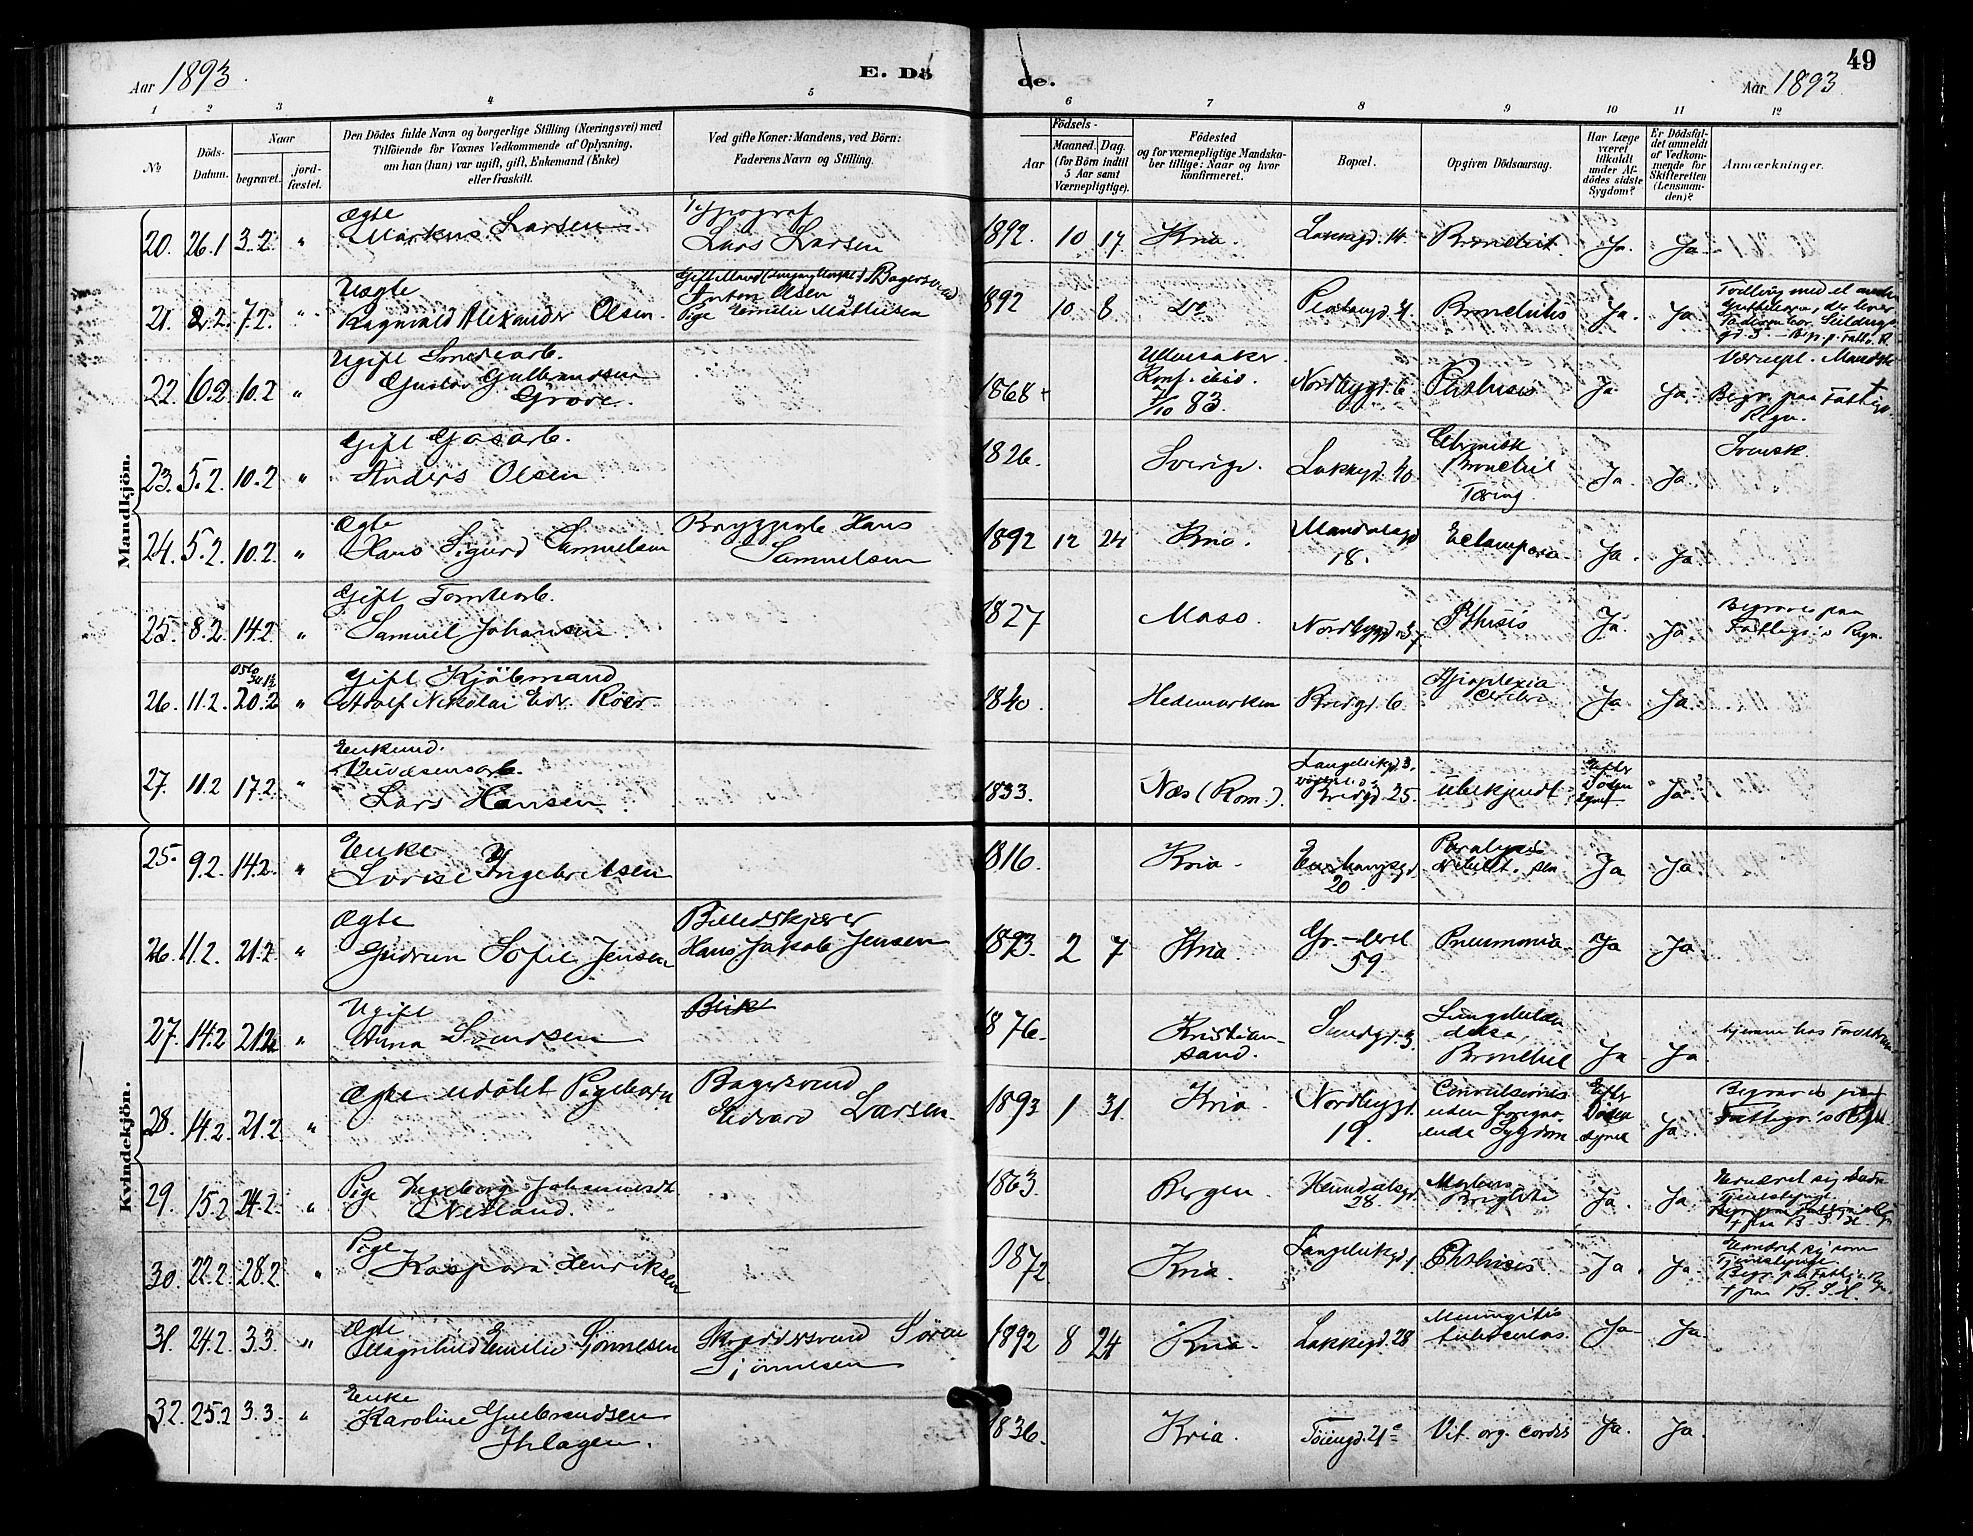 49
Aar 1893.
E. Dö
de.
Aar 1893
1 2 3 4 5 6 7 8 9 10 11 12
№
Döds-
Datum.
Naar
begravet.
jord-
fæstet.
Den Dödes fulde Navn og borgerlige Stilling (Næringsvei) med
Tilföiende for Voxnes Vedkommende af Oplysning,
om han (hun) var ugift, gift, Enkemand (Enke)
eller fraskilt.
Ved gifte Koner: Mandens, ved Börn:
Faderens Navn og Stilling.
Födsels-
Aar
Maaned. Dag.
(for Börn indtil
5 Aar samt
Værnepligtige).
Födested
og for værnepligtige Mandska-
ber tillige: Naar og hvor
konfirmeret.
Bopæl.
Opgiven Dödsaarsag.
Har Læge
været
tilkaldt
under Af-
dödes sidste
Sygdom?
Er Dödsfal-
det anmeldt
af Vedkom-
mende for
Skifteretten
(Lensman-
den)?
Anmærkninger.
Mandkjön.
20. 26.1 3.2 " Ægte
Markus Larsen
Typograf
Lars Larsen
1892. 10 17. Kria. Lakkegd. 14. Bronchit Ja. Ja
21. 2.2. 7.2. " Uægte
Ragnvald Alexander Olsen.
Bagersvend
Anton Olsen
Pige Emilie Mathisen
1892 10 8 Do Bronchitis Ja. Ja
22. 10.2 "
Ugift
Gustav Gulbrandsen
Grove.
1868
Ullensaker.
Konf. ibid.
83.
Nordbygd. 6 Phthisis Ja Ja.
Værnepl. Mandsk
Begr. paa Fattigv.
Regn.
23. 5.2. 10.2 " Gift Gasarb.
Anders Olsen
1826. Sverige. Lakkegd. 40.
Chronisk
Bronchit
Tæring
Ja. Ja.
Svensk.
24. 5.2. 10.2. " Ægte
Hans Sigurd Samuelsen
Bryggearb. Hans
Samuelsen
1892 12 24 Kria.
Mandalsgd
18.
Eclampsia Ja. Ja.
25. 8.2. 14.2 " Gift Tomtearb.
Samuel Johansen
1827 Moss Phthisis Ja. Ja.
Begraves paa
Fattigv.s Regn.
26. 11.2. 20.2 " Gift Kjöbmand
Adolf Nikolai Edv. Röer
1840. Hedemarken Bredgd. 6.
Apoplexia
cerebri
Ja Ja.
27. 11.2 17.2. " Enkemd.
Lars Hansen
1833. Næs (Rom.).
Langleikgd. 3,
Bredgd. 25.
ubekjendt
Efter
Dödsen
synet
Ja.
Kvindekjön.
25. 9.2. 14.2. " Enke
Lovise Ingebretsen
1816. Kria.
20. Ja Ja
26. 11.2. 21.2 " Ægte
Gudrun Sofie Jensen
Billedskjærer
Hans Jakob Jensen
1893. 2 7 Kria.
59
Pneumonia. Ja Ja
27. 14.2 21.2 " Ugift
Anna Svendsen
1876.
Kristian-
sand.
Sundgd. 3.
Lungebetæn
delse,
Bronchit
Ja Ja
hjemme hos Forældrene
28. 14.2. 21.2 " Ægte udöbt Pigebarn
Bagersvend
Edvard Larsen.
1893 1 31. Kria.
Nordbygd.
19.
Convulsiones
uden foregaa-
ende Sygdom
Efter
Döden
synet
Ja.
Begraves paa
Fattigv.'s Regn
29. 15.2 24.2. " Pige Ingeborg Johannesdt.
Nesland.
1863. Bergen.
Heimdalsgd.
28.
Morbus
Brightii
Ja. Ja.
30. 22.2. 28.2 " Pige
Kaspara Henriksen
1872 Kria. Langleikgd 1 Phthisis Ja. Ja.
Ernæret sig som
Tjenestepige.
Begr. paa Fattigv. Regn.
31. 24.2. 3.3. " Ægte
Magnhild Emilie Sjönnesen
Skræddersvend Sören
Sjönnesen
1892 8 24 Kria. Lakkegd. 28
Meningitis
tuberculos.
Ja Ja
32. 25.2 3.3. " Enke
Karoline Gulbrandsen
Ihlagen.
1836. Kria. Töiengd. 21 c Vit. org. cordis Ja. Ja.